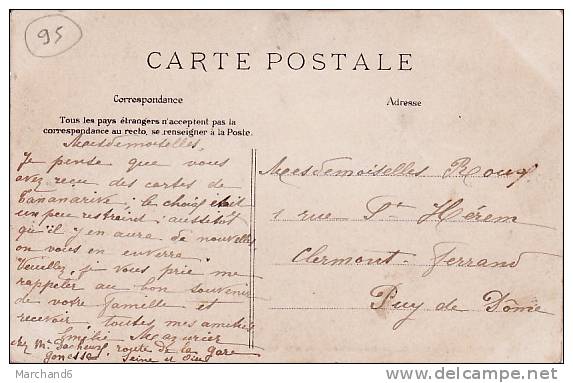 95
CARTE POSTALE
Correspondance
Adresse
Tous les pays étrangers n'acceptent pas la
correspondance au recto, se renseigner à la Poste.
Mesdemoiselles,
Je pense que vous
avez reçu des cartes de
Tananarive; le choix était
un peu restreint; aussitôt
qu'il y en aura de nouvelles
on vous en enverra.
Veuillez, je vous prie me
rappeler au bon souvenir
de votre famille et
recevoir toutes mes amitiés
Emilie Mazurier
chez Mr route de la gare
Gonesse Seine et Oise
Mesdemoiselles Roux
1 rue St Hérem
Clermont-Ferrand
Puy de Dôme
Marchand6
delcampe.net